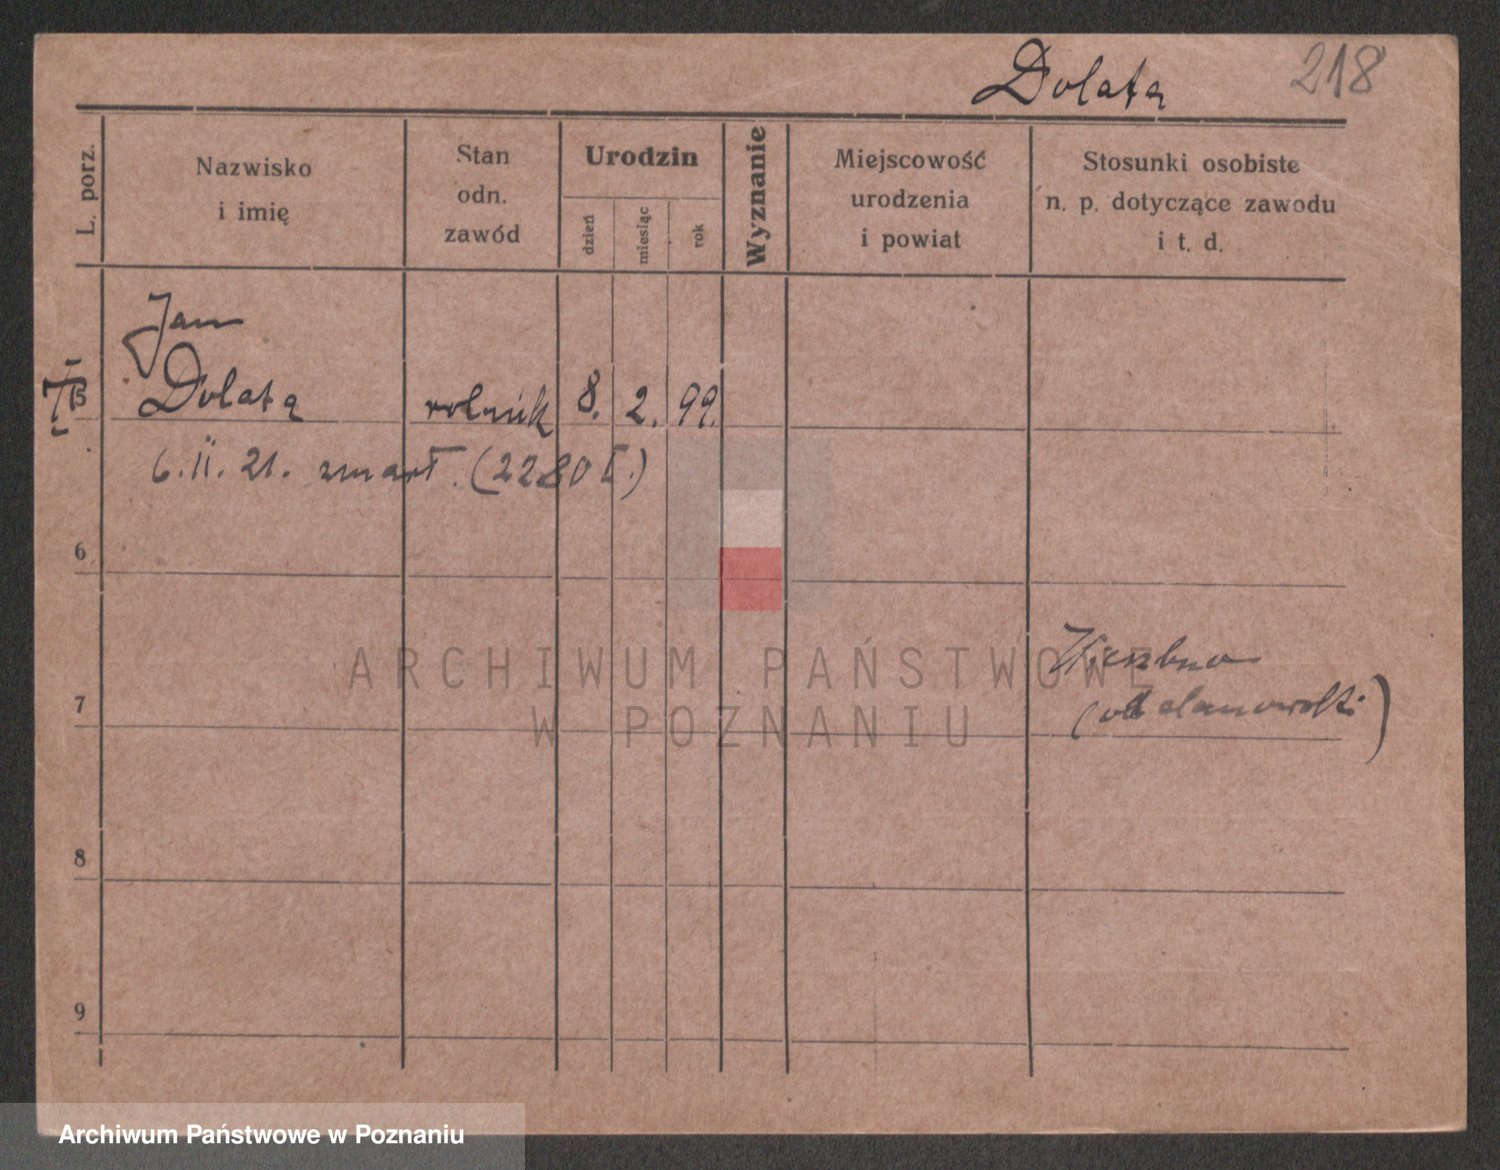 Dolata 218
L. porz.
Nazwisko
i imię
Stan
odn.
zawód
Urodzin
dzień
miesiąc
rok
Wyznanie
Miejscowość
urodzenia
i powiat
Stosunki osobiste
n. p. dotyczące zawodu
i t. d.
Jan
5 Dolata rolnik 8. 2. 99.
6. II. 21. zmarł. (2280 I.)
6
ARCHIWUM PAŃSTWOWE
W POZNANIU
7
8
9
Archiwum Państwowe w Poznaniu